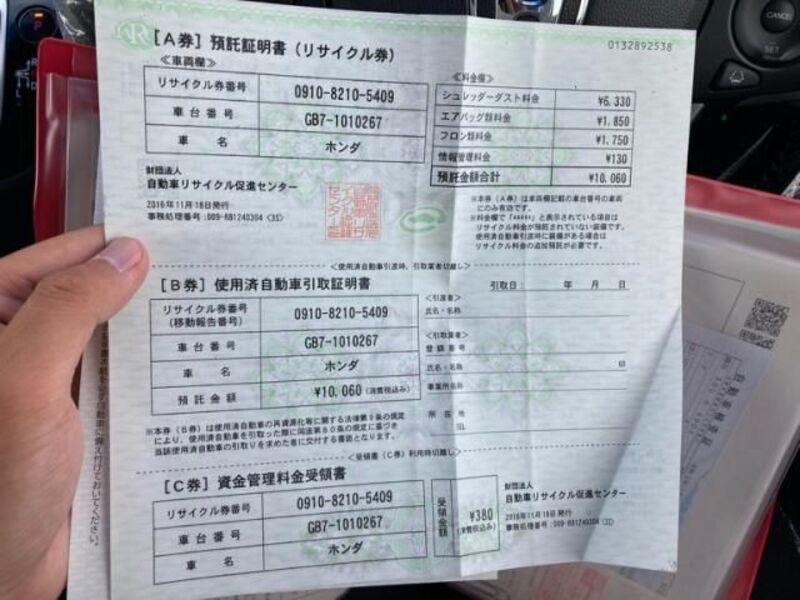 0132892538
[A券] 預託証明書 (リサイクル券)
≪車両欄≫
リサイクル券番号 0910-8210-5409
車台番号 GB7-1010267
車名 ホンダ
≪料金欄≫
シュレッダーダスト料金 ¥6,330
エアバッグ類料金 ¥1,850
フロン類料金 ¥1,750
情報管理料金 ¥130
預託金額合計 ¥10,060
財団法人
自動車リサイクル促進センター
2016年11月18日発行
事務処理番号:009-881240304 <3S>
※本券(A券)は車両欄記載の車台番号の車両
にのみ有効です。
※料金欄で「*****」と表示されている項目は
リサイクル料金が預託されていない装備です。
使用済自動車引渡時に装備がある場合は
リサイクル料金の追加預託が必要です。
<使用済自動車引渡時、引取業者切離し>
[B券] 使用済自動車引取証明書
引取日: 年 月 日
リサイクル券番号
(移動報告番号) 0910-8210-5409
車台番号 GB7-1010267
車名 ホンダ
預託金額 ¥10,060 (消費税込み)
<引渡者>
氏名・名称
<引取業者>
登録番号
氏名・名称 印
事業所名称
所在地
TEL
※本券(B券)は使用済自動車の再資源化等に関する法律第9条の規定
により、使用済自動車を引取った際に同法第80条の規定に基づき
当該使用済自動車の引取りを求めた者に交付する書面となります。
<受領書(C券)利用時切離し>
[C券] 資金管理料金受領書
リサイクル券番号 0910-8210-5409
車台番号 GB7-1010267
車名 ホンダ
受領金額 ¥380 (消費税込み)
財団法人
自動車リサイクル促進センター
2016年11月18日発行
事務処理番号:009-881240304 <3S>
CANCEL
SET